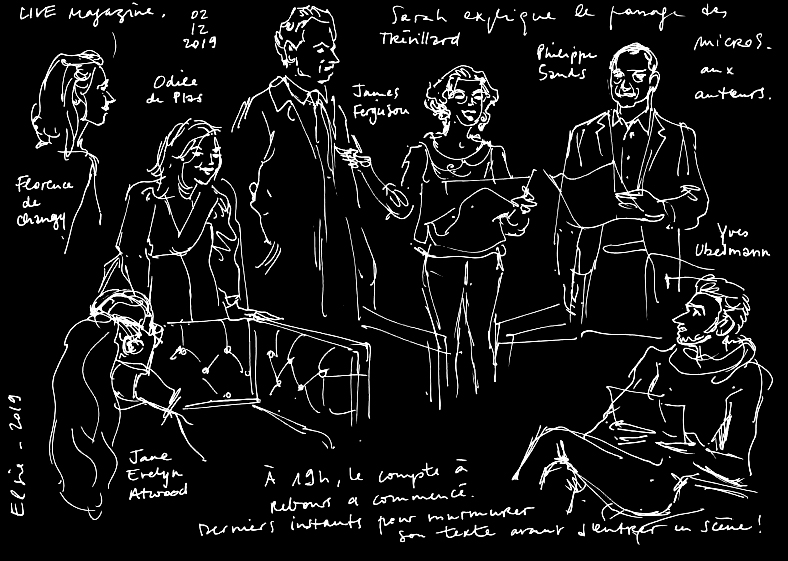 LIVE Magazine.
02
12
2019
Sarah explique le passage des
micros.
aux
auteurs.
Trévillard
Philippe
Sands
Odile
de Plas
James
Ferguson
Florence
de
Changy
Yves
Ubelmann
Jane
Evelyn
Atwood
Elsie - 2019
À 19h, le compte à
rebours a commencé.
Derniers instants pour murmurer
son texte avant d'entrer en scène!